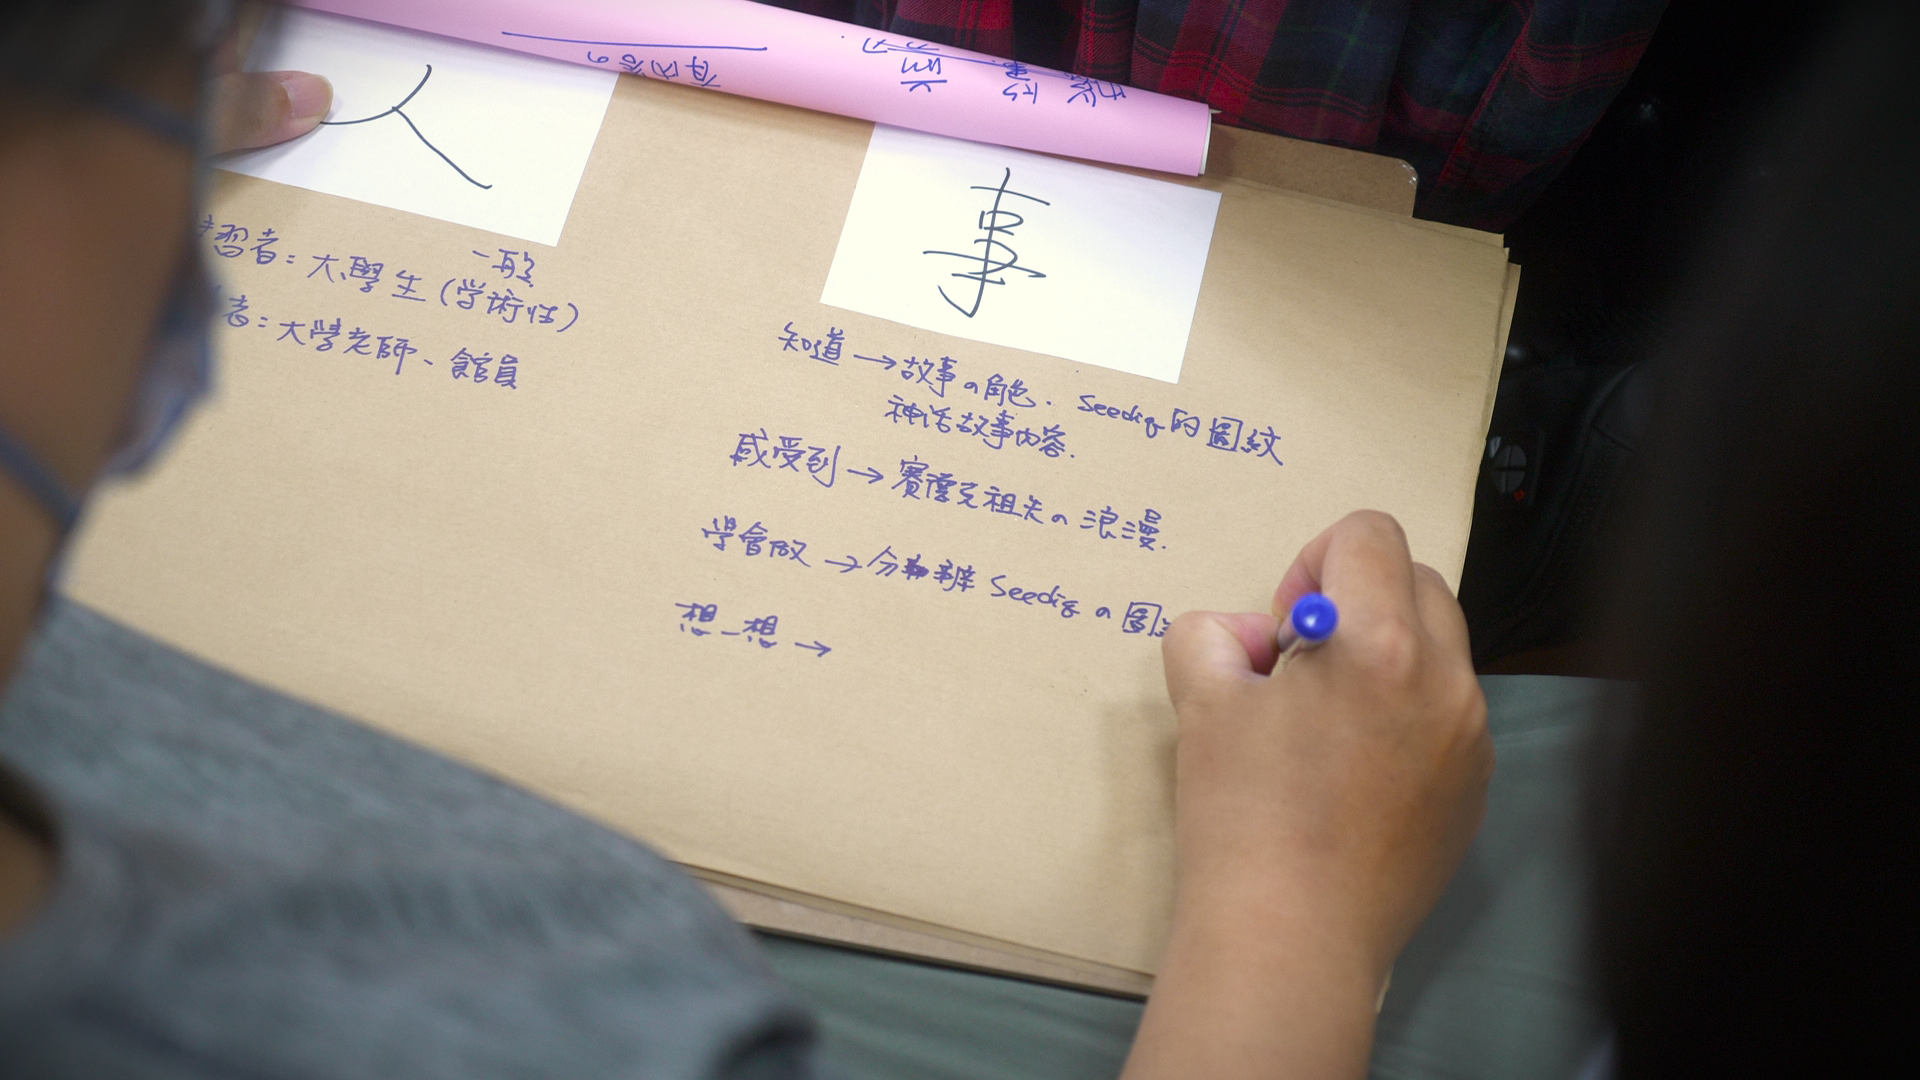 人
習者：大學生（学術性）
一般
者：大学老師、館員
事
知道→故事の角色．Seediq的圖紋
神话故事内容．
感受到→賽德克祖先の浪漫．
學會做→分辨 Seediq の圖
想一想→
有内容の